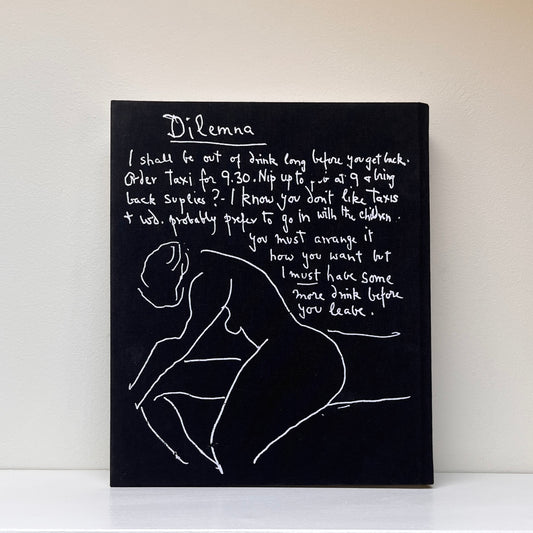 Dilemna
I shall be out of drink long before you get back.
Order taxi for 9.30. Nip up to at 9 & bring
back suplies? - I know you don't like taxis
+ wd. probably prefer to go in with the children.
you must arrange it
how you want but
I must have some
more drink before
you leave.